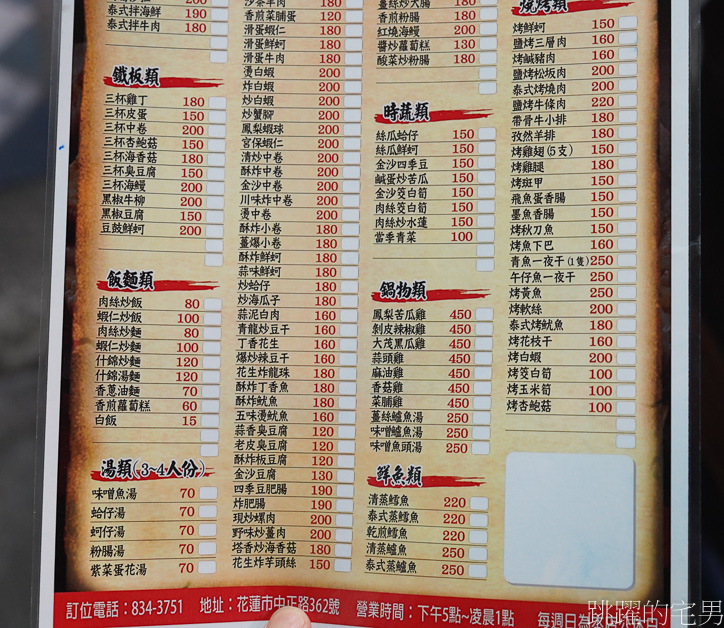 泰式拌海鮮 190
泰式拌牛肉 180
鐵板類
三杯雞丁 180
三杯皮蛋 150
三杯中卷 200
三杯杏鮑菇 150
三杯海香菇 180
三杯臭豆腐 150
三杯海鰻 200
黑椒牛柳 200
黑椒豆腐 150
豆鼓鮮蚵 200
飯麵類
肉絲炒飯 80
蝦仁炒飯 100
肉絲炒麵 80
蝦仁炒麵 100
什錦炒麵 120
什錦湯麵 120
香蔥油麵 70
香煎蘿蔔糕 60
白飯 15
湯類(3~4人份)
味噌魚湯 70
蛤仔湯 70
蚵仔湯 70
粉腸湯 70
紫菜蛋花湯 70
香煎菜脯蛋 120
滑蛋蝦仁 180
滑蛋鮮蚵 180
滑蛋牛肉 180
燙白蝦 200
炸白蝦 200
炒白蝦 200
炒蟹腳 200
鳳梨蝦球 200
宮保蝦仁 200
清炒中卷 200
酥炸中卷 200
金沙中卷 200
川味炸中卷 200
燙中卷 200
酥炸小卷 180
薑爆小卷 180
酥炸鮮蚵 180
蒜味鮮蚵 180
炒蛤仔 180
炒海瓜子 180
蒜泥白肉 160
青龍炒豆干 160
丁香花生 160
爆炒辣豆干 160
花生炸龍珠 180
酥炸丁香魚 180
酥炸魷魚 180
五味燙魷魚 160
蒜香臭豆腐 120
老皮臭豆腐 120
酥炸板豆腐 120
金沙豆腐 130
四季豆肥腸 190
炸肥腸 190
現炒螺肉 200
野味炒薑肉 200
塔香炒海香菇 180
花生炸芋頭絲 150
薑絲炒大腸 180
香煎粉腸 180
紅燒海鰻 200
醬炒蘿蔔糕 130
酸菜炒粉腸 180
時蔬類
絲瓜蛤仔 150
絲瓜鮮蚵 150
金沙四季豆 150
鹹蛋炒苦瓜 150
金沙筊白筍 150
肉絲筊白筍 150
肉絲炒水蓮 150
當季青菜 100
鍋物類
鳳梨苦瓜雞 450
剝皮辣椒雞 450
大茂黑瓜雞 450
蒜頭雞 450
麻油雞 450
香菇雞 450
菜脯雞 450
薑絲鱸魚湯 250
味噌鱸魚湯 250
味噌魚頭湯 250
鮮魚類
清蒸鱈魚 220
泰式蒸鱈魚 220
乾煎鱈魚 220
清蒸鱸魚 250
泰式蒸鱸魚 250
燒烤類
烤鮮蚵 150
鹽烤三層肉 160
烤鹹豬肉 160
鹽烤松坂肉 200
泰式烤燒肉 200
鹽烤牛條肉 220
帶骨牛小排 180
孜然羊排 180
烤雞翅(5支) 150
烤雞腿 180
烤斑甲 150
飛魚蛋香腸 150
墨魚香腸 150
烤秋刀魚 150
烤魚下巴 160
青魚一夜干(1隻) 250
午仔魚一夜干 250
烤黃魚 250
烤軟絲 200
泰式烤魷魚 180
烤花枝干 160
烤白蝦 200
烤筊白筍 100
烤玉米筍 100
烤杏鮑菇 100
訂位電話：834-3751 地址：花蓮市中正路362號 營業時間：下午5點~凌晨1點
跳躍的宅男